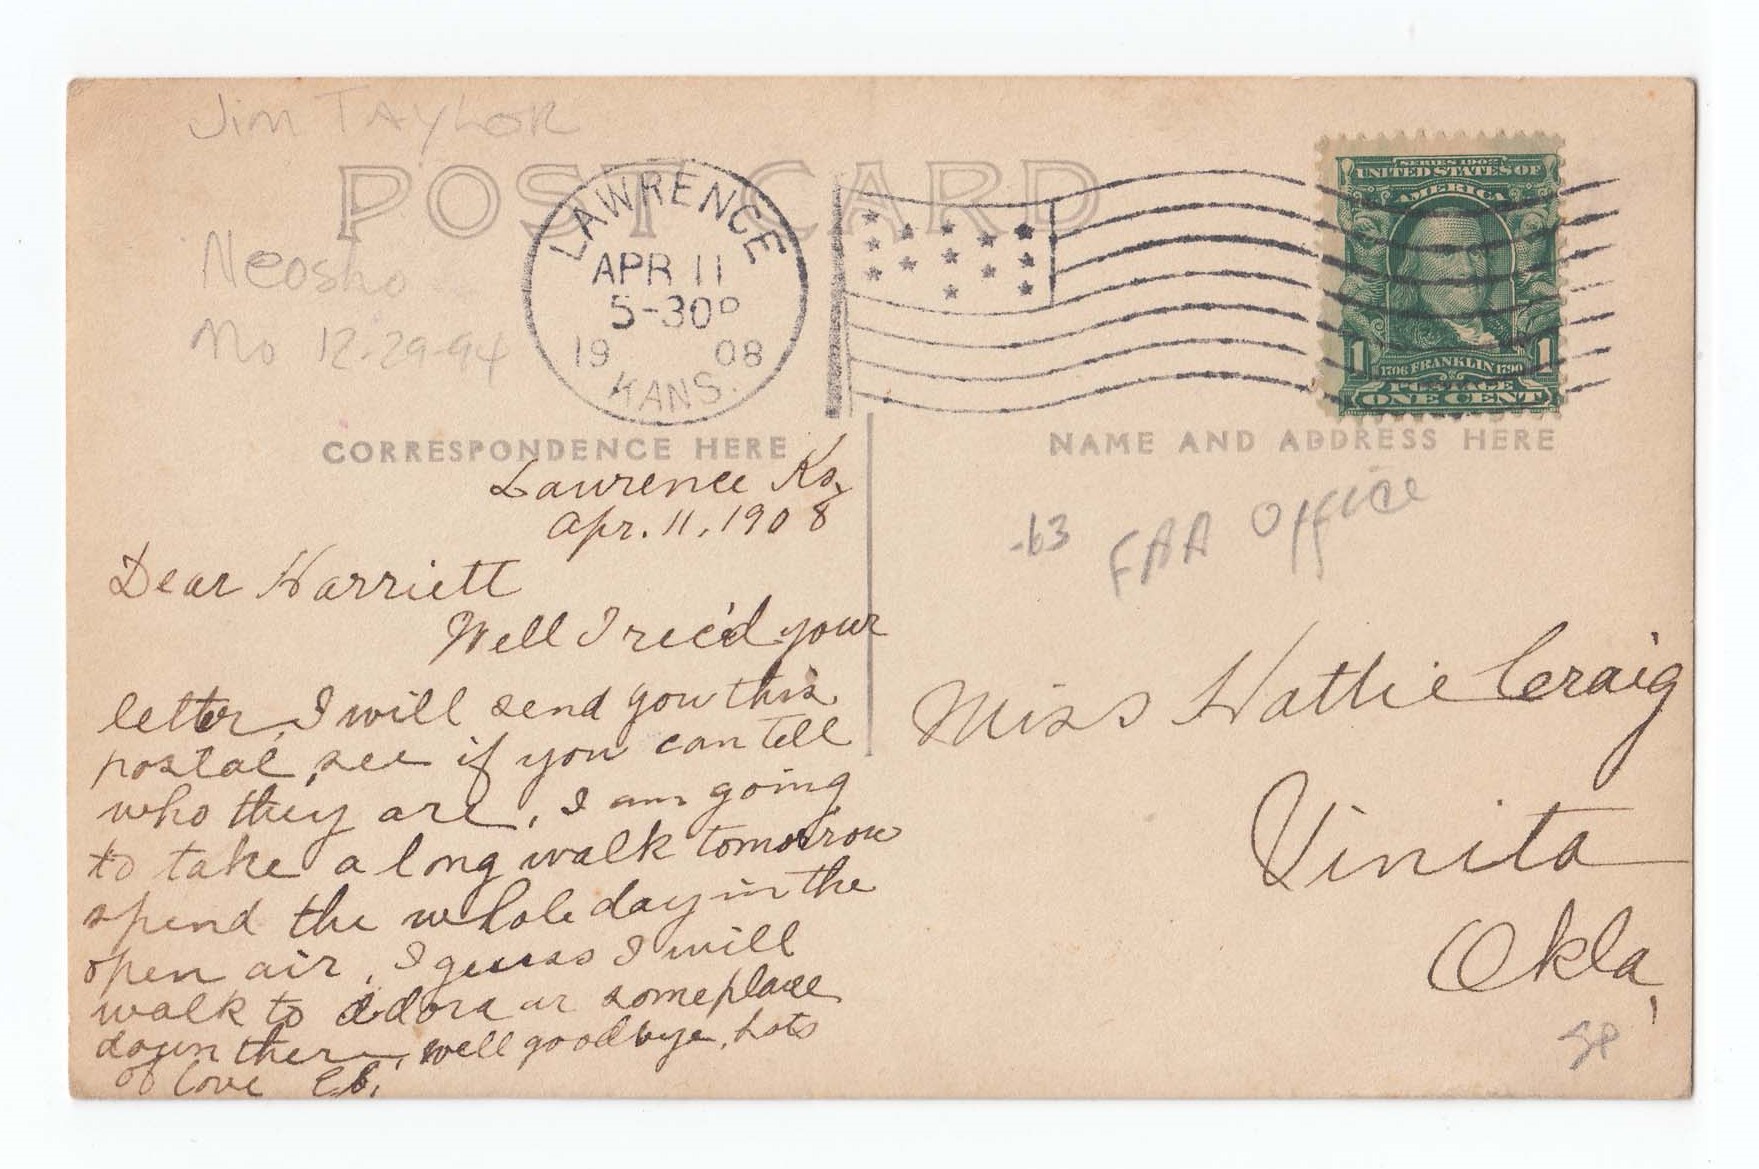 Jim TAYLOR
POST CARD
Neosho
Mo 12-29-94
LAWRENCE
APR 11
5-30P
19 08
KANS.
SERIES 1902
UNITED STATES OF
AMERICA
1 1706 FRANKLIN 1790 1
POSTAGE
ONE CENT
CORRESPONDENCE HERE
Lawrence Ks,
Apr. 11, 1908
Dear Harriett
Well I rec'd your
letter, I will send you this
postal, see if you can tell
who they are, I am going
to take a long walk tomorrow
spend the whole day in the
open air, I guess I will
walk to or someplace
down there, well goodbye, Lots
of love
NAME AND ADDRESS HERE
-63 FAA Office
Miss Hattie Craig
Vinita
Okla,